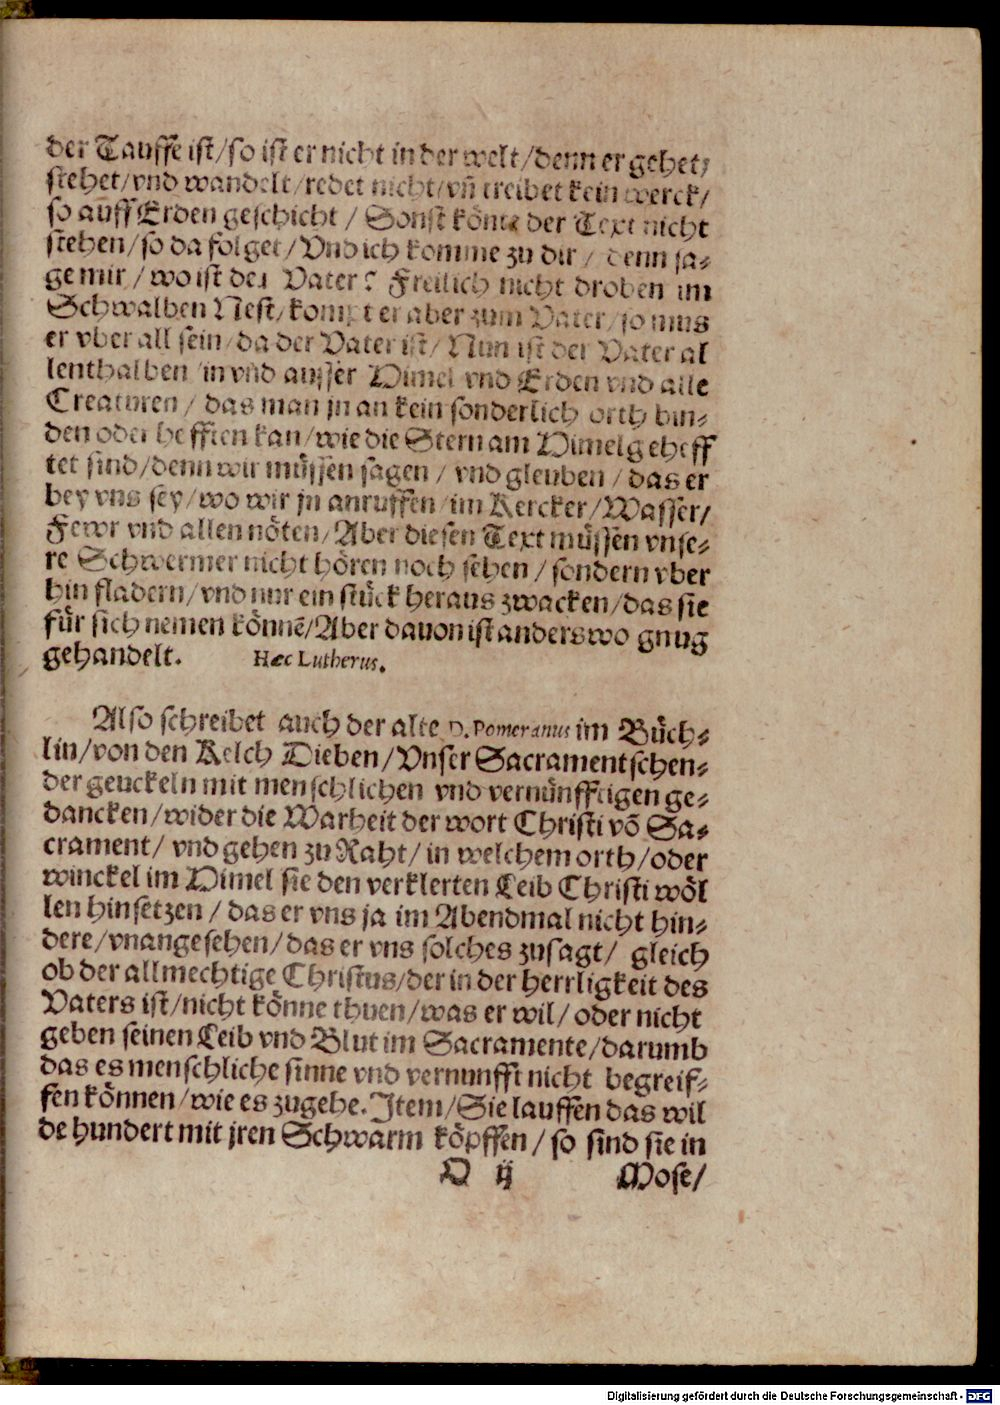 der Tauffe ist/so ist er nicht in der welt/denn er gehet/
stehet/vnd wandelt/redet nicht/vñ treibet kein werck/
so auff Erden geschicht / Sonst könte der Text nicht
stehen/so da folget/Vnd ich komme zu dir / denn sa⸗
ge mir / wo ist der Vater? Freilich nicht droben im
Schwalben Nest/kompt er aber zum Vater/so mus
er vber all sein/da der Vater ist/Nun ist der Vater al
lenthalben/in vnd ausser Himel vnd Erden vnd alle
Creaturen / das man jn an kein sonderlich orth bin⸗
den oder hefften kan/wie die Stern am Himel geheff
tet sind/denn wir müssen sagen / vnd gleuben / das er
bey vns sey/wo wir jn anruffen/im Kercker/Wasser/
Fewr vnd allen nöten/Aber diesen Text müssen vnse⸗
re Schwermer nicht hören noch sehen / sondern vber
hin fladern/vnd nur ein stück heraus zwacken/das sie
für sich nemen könnē/Aber dauon ist anderswo gnug
gehandelt. Hæc Lutherus.
Also schreibet auch der alte D. Pomeranus im Büch⸗
lin/von den Kelch Dieben/Vnser Sacramentschen⸗
der geuckeln mit menschlichen vnd vernünfftigen ge⸗
dancken/wider die Warheit der wort Christi võ Sa⸗
crament/ vnd gehen zu Raht/ in welchem orth/oder
winckel im Himel sie den verklerten Leib Christi wöl
len hinsetzen / das er vns ja im Abendmal nicht hin⸗
dere/vnangesehen/das er vns solches zusagt/ gleich
ob der allmechtige Christus/der in der herrligkeit des
Vaters ist/nicht könne thuen/was er wil/ oder nicht
geben seinen Leib vnd Blut im Sacramente/darumb
das es menschliche sinne vnd vernunfft nicht begreif⸗
fen können/wie es zugehe. Item/Sie lauffen das wil
de hundert mit jren Schwarm köpffen/ so sind sie in
D ij Mose/
Digitalisierung gefördert durch die Deutsche Forschungsgemeinschaft - DFG